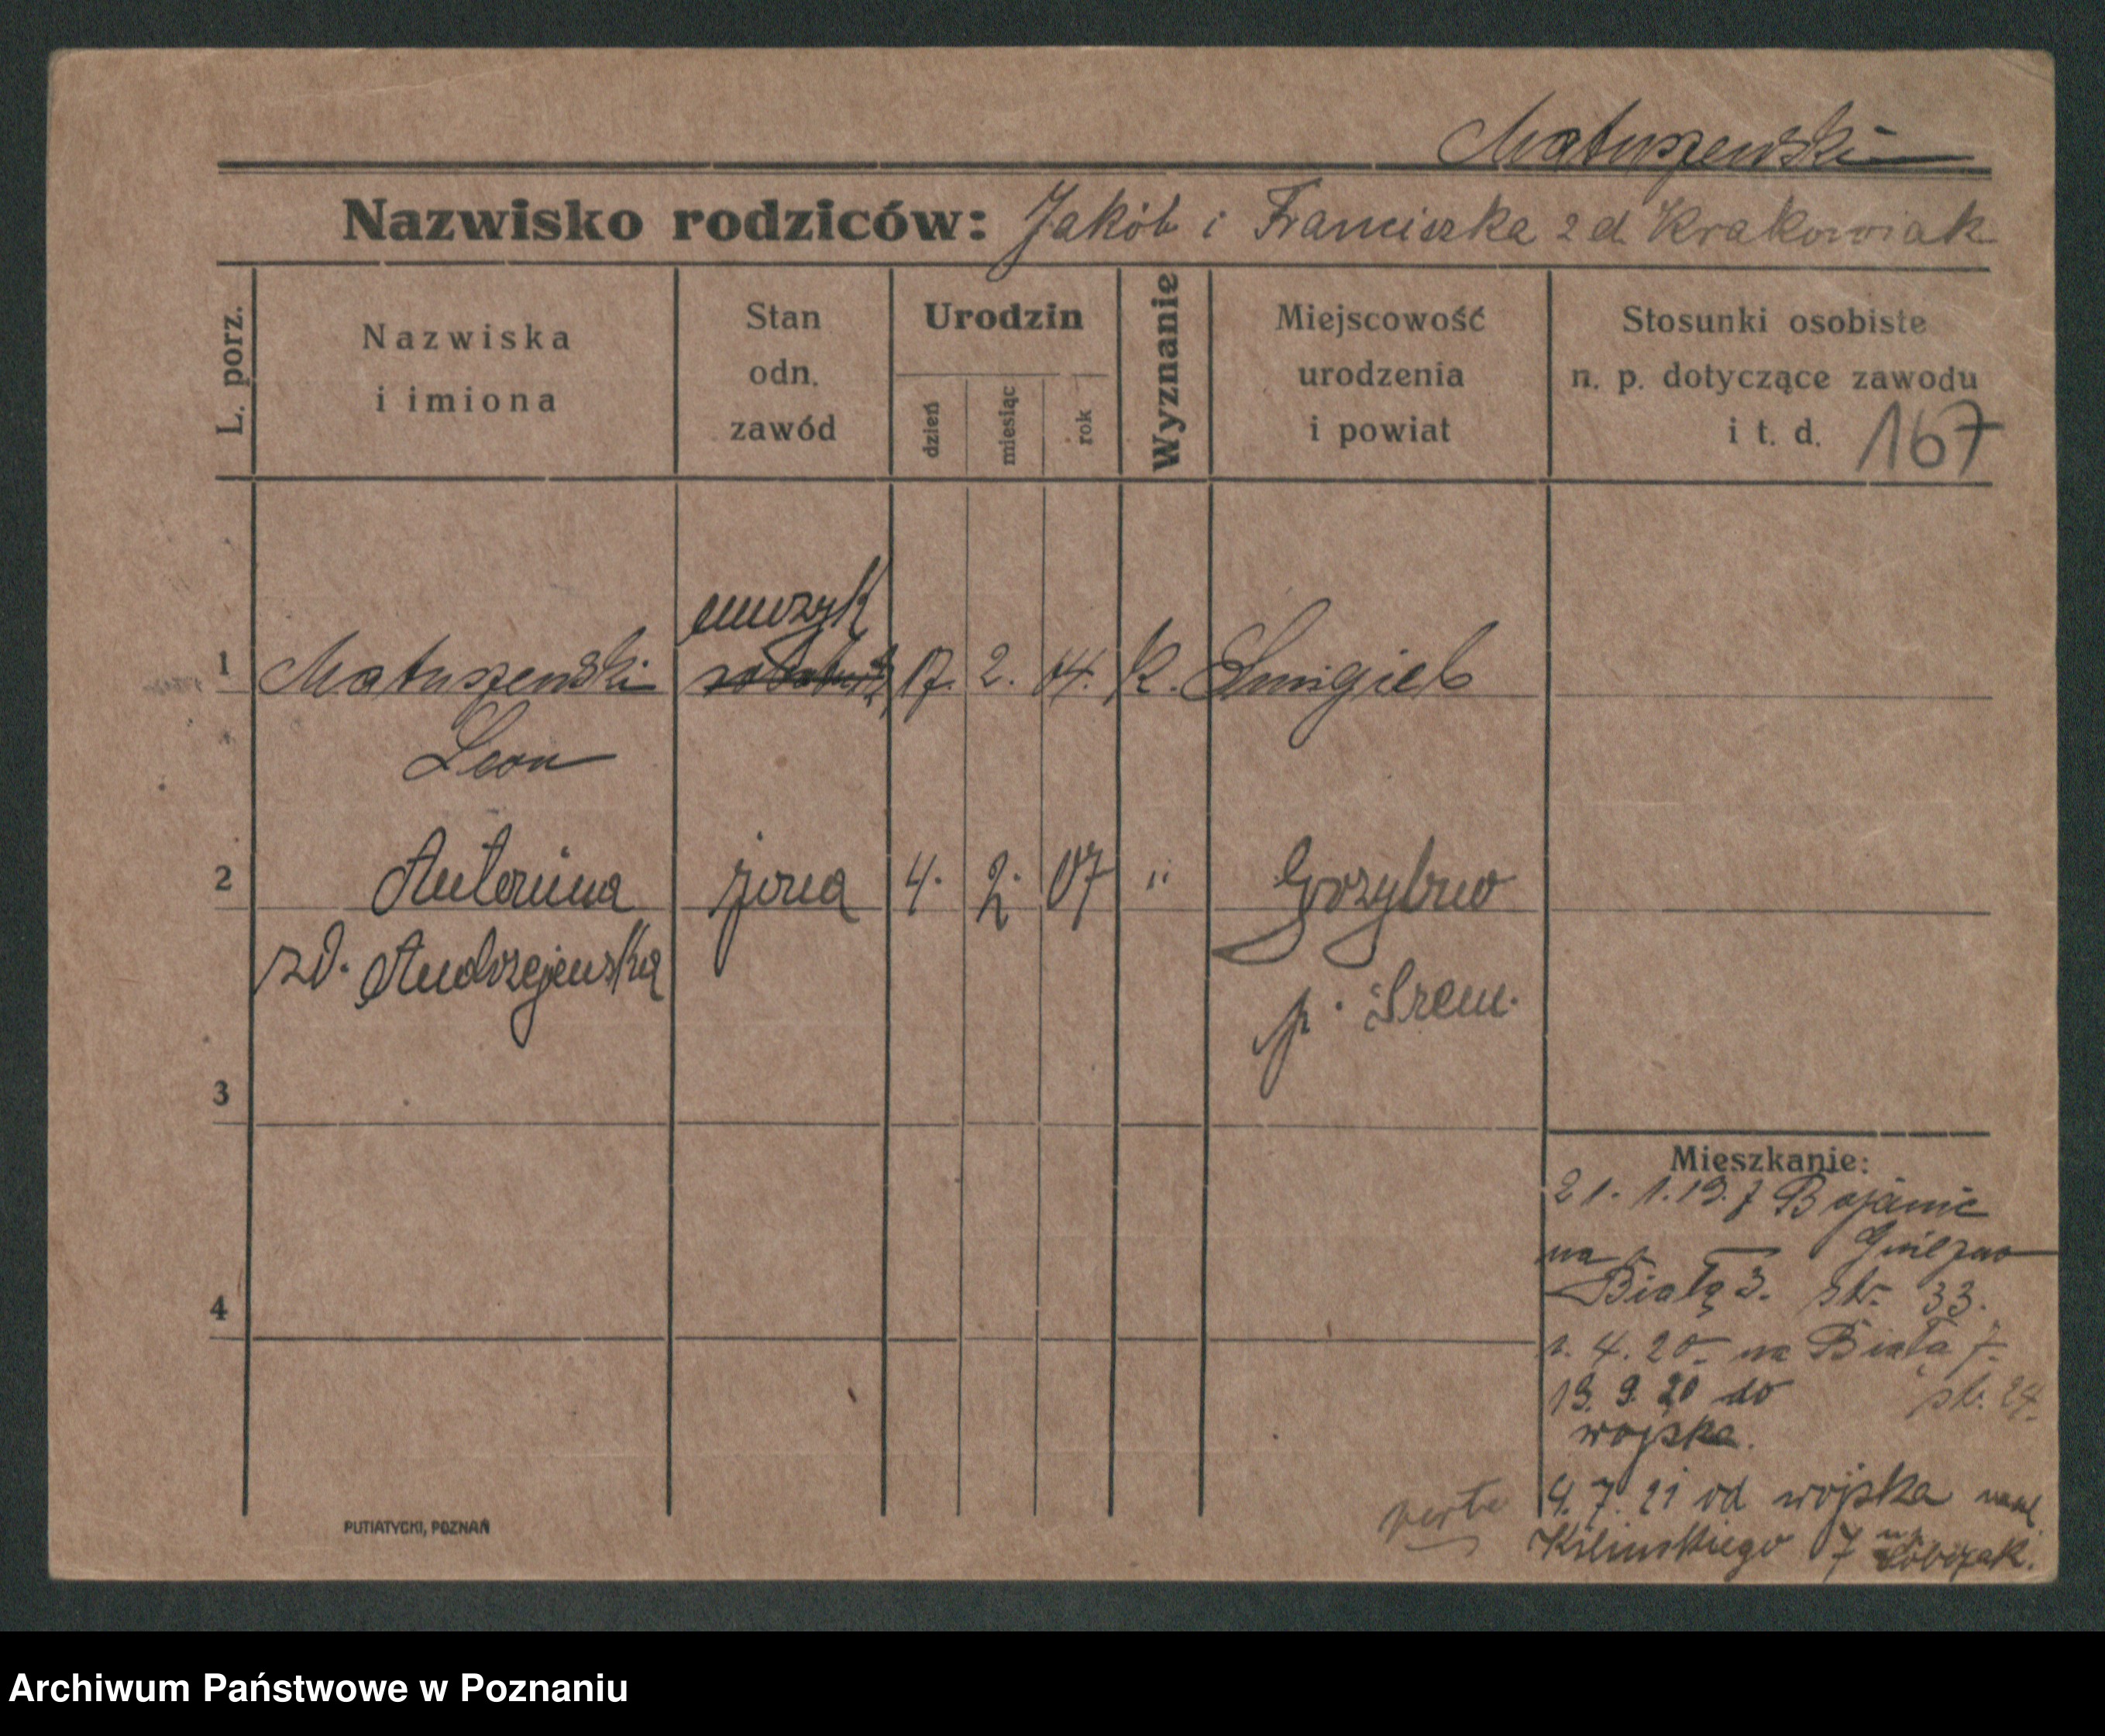 Matuszewski
Nazwisko rodziców: Jakób i Franciszka z d. Krakowiak
L. porz.
Nazwiska
i imiona
Stan
odn.
zawód
Urodzin
dzień
miesiąc
rok
Wyznanie
Miejscowość
urodzenia
i powiat
Stosunki osobiste
n. p. dotyczące zawodu
i t. d. 167
muzyk
1 Matuszewski 17. 2. 04. K. Śmigiel
Leon
2 Antonina żona 4. 2. 07 "
zd. Andrzejewska
p. Śrem.
3
4
Mieszkanie:
21. 1. 19. z Bojanic
na Gniezno
Białą 3. str. 33.
1. 4. 20. na Białą 7.
13. 9. 20 do str. 24.
wojska.
4. 7. 21 od wojska
Kilińskiego 7
verte
PUTIATYCKI, POZNAŃ
Archiwum Państwowe w Poznaniu